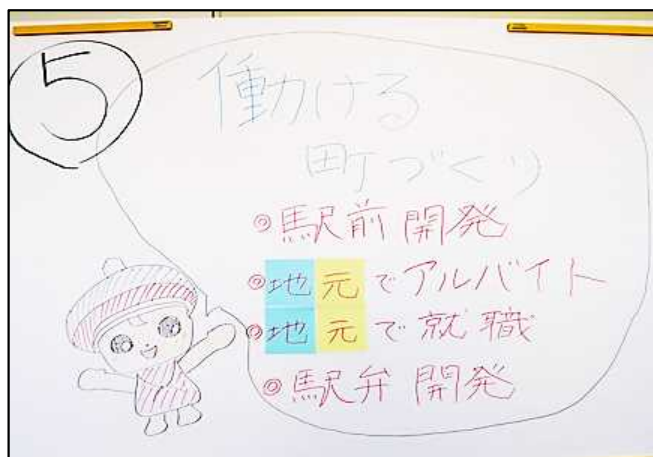 5
働ける
町づくり
◎駅前開発
◎地元でアルバイト
◎地元で就職
◎駅弁開発